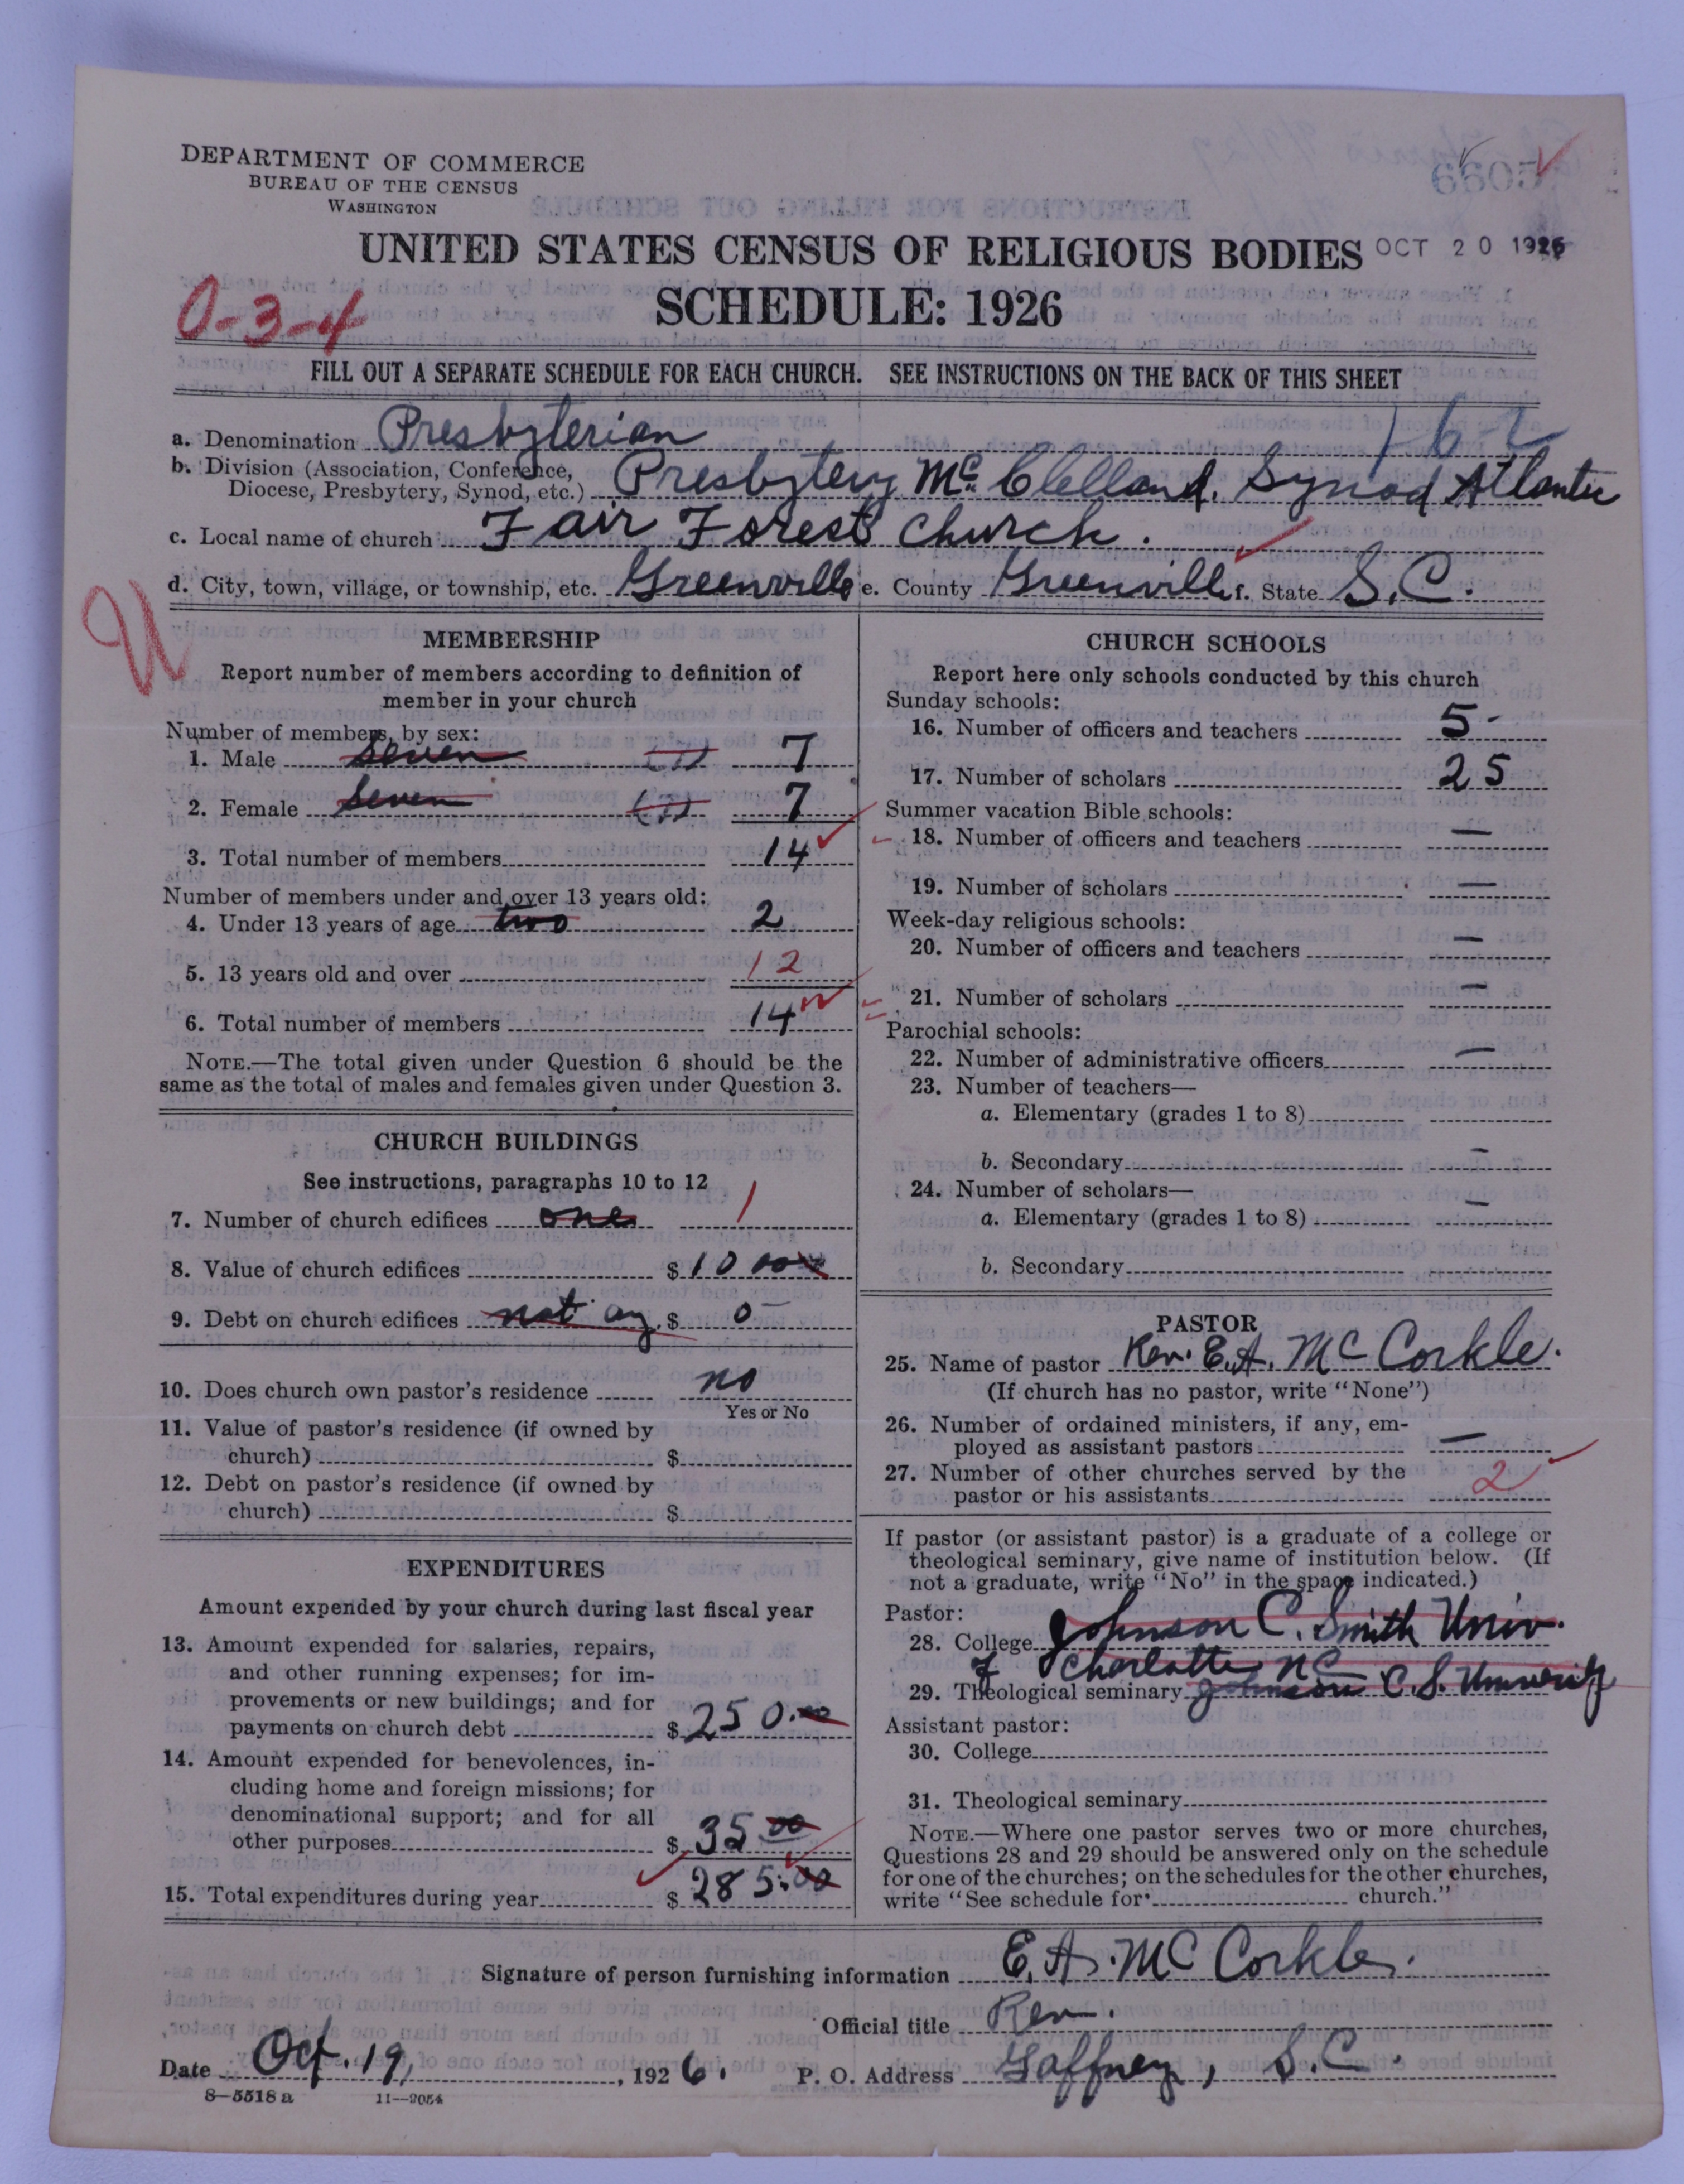 DEPARTMENT OF COMMERCE
BUREAU OF THE CENSUS
WASHINGTON
6605
UNITED STATES CENSUS OF RELIGIOUS BODIES OCT 20 1926
SCHEDULE: 1926
0-3-4
FILL OUT A SEPARATE SCHEDULE FOR EACH CHURCH. SEE INSTRUCTIONS ON THE BACK OF THIS SHEET
a. Denomination Presbyterian
b. Division (Association, Conference, Diocese, Presbytery, Synod, etc.) Presbytery McClelland, Synod Atlantic
c. Local name of church Fair Forest Church.
d. City, town, village, or township, etc. Greenville e. County Greenville f. State S.C.
U
MEMBERSHIP
Report number of members according to definition of
member in your church
Number of members, by sex:
1. Male Seven (7) 7
2. Female Seven (7) 7
3. Total number of members 14
Number of members under and over 13 years old:
4. Under 13 years of age two 2
5. 13 years old and over 12
6. Total number of members 14
NOTE.—The total given under Question 6 should be the
same as the total of males and females given under Question 3.
CHURCH BUILDINGS
See instructions, paragraphs 10 to 12
7. Number of church edifices one 1
8. Value of church edifices $ 1000
9. Debt on church edifices not any $ 0
10. Does church own pastor's residence no
Yes or No
11. Value of pastor's residence (if owned by
church) $
12. Debt on pastor's residence (if owned by
church) $
EXPENDITURES
Amount expended by your church during last fiscal year
13. Amount expended for salaries, repairs,
and other running expenses; for im-
provements or new buildings; and for
payments on church debt $ 250.00
14. Amount expended for benevolences, in-
cluding home and foreign missions; for
denominational support; and for all
other purposes $ 35 00
15. Total expenditures during year $ 285.00
CHURCH SCHOOLS
Report here only schools conducted by this church
Sunday schools:
16. Number of officers and teachers 5-
17. Number of scholars 25
Summer vacation Bible schools:
18. Number of officers and teachers —
19. Number of scholars —
Week-day religious schools:
20. Number of officers and teachers —
21. Number of scholars —
Parochial schools:
22. Number of administrative officers —
23. Number of teachers—
a. Elementary (grades 1 to 8)
b. Secondary —
24. Number of scholars—
a. Elementary (grades 1 to 8) —
b. Secondary
PASTOR
25. Name of pastor Rev. E.A. McCorkle.
(If church has no pastor, write "None")
26. Number of ordained ministers, if any, em-
ployed as assistant pastors —
27. Number of other churches served by the
pastor or his assistants 2
If pastor (or assistant pastor) is a graduate of a college or
theological seminary, give name of institution below. (If
not a graduate, write "No" in the space indicated.)
Pastor:
28. College Johnson C. Smith Univ.
Charlotte NC
29. Theological seminary Johnson C. S. University
Assistant pastor:
30. College
31. Theological seminary
NOTE.—Where one pastor serves two or more churches,
Questions 28 and 29 should be answered only on the schedule
for one of the churches; on the schedules for the other churches,
write "See schedule for church."
Signature of person furnishing information E.A. McCorkle.
Official title Rev.
Date Oct. 19, 1926. P. O. Address Gaffney, S.C.
8—5518 a 11—9054